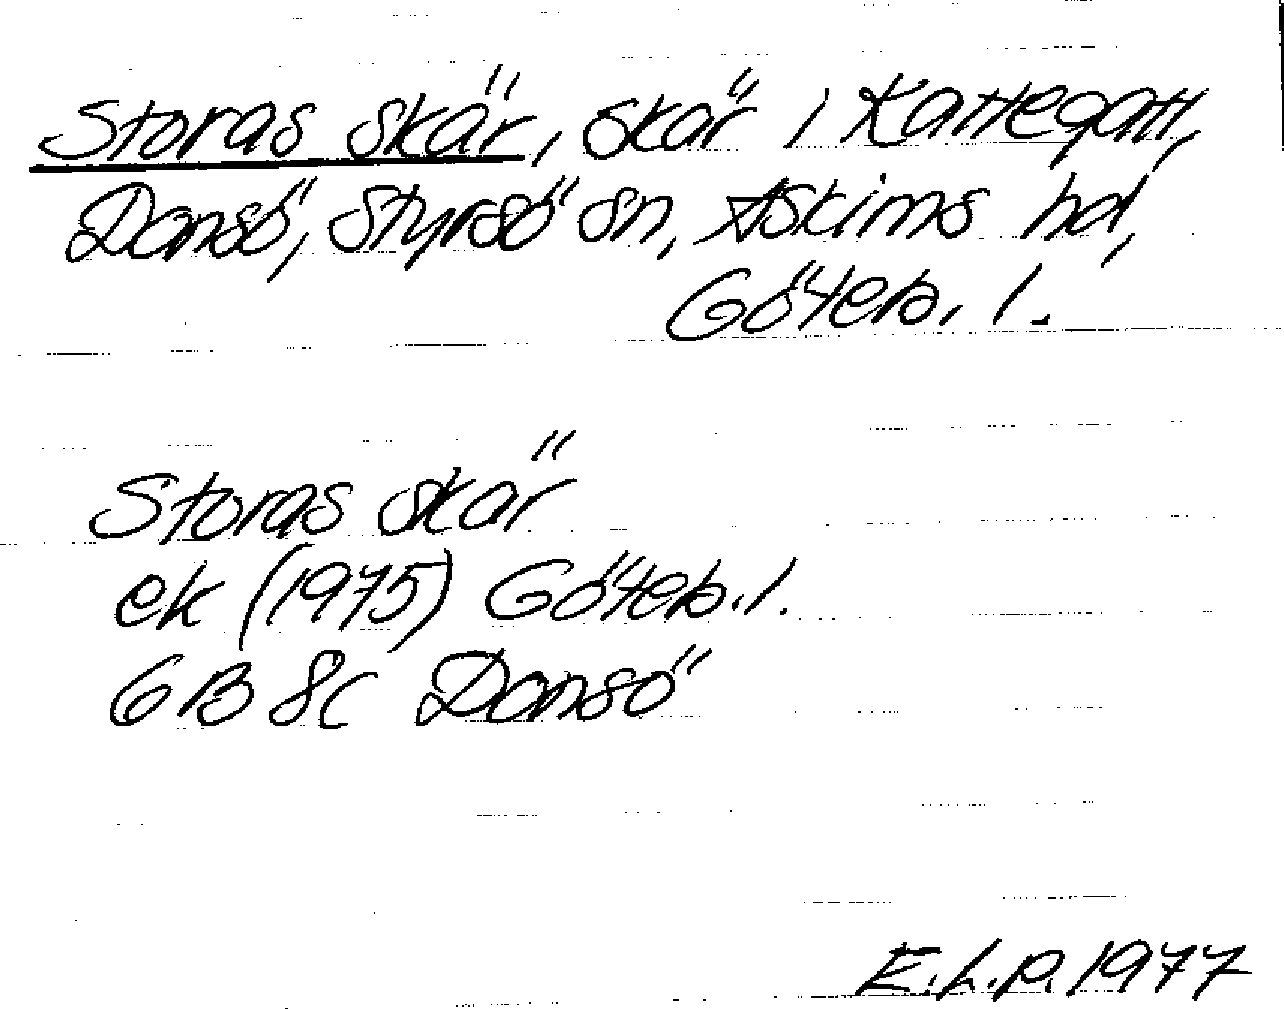 Storas skär, skär i Kattegatt,
Donsö, Styrsö sn, Askims hd,
Göteb. l.
Storas skär
ek (1975) Göteb. l.
6B 8c Donsö
E.L.P. 1977